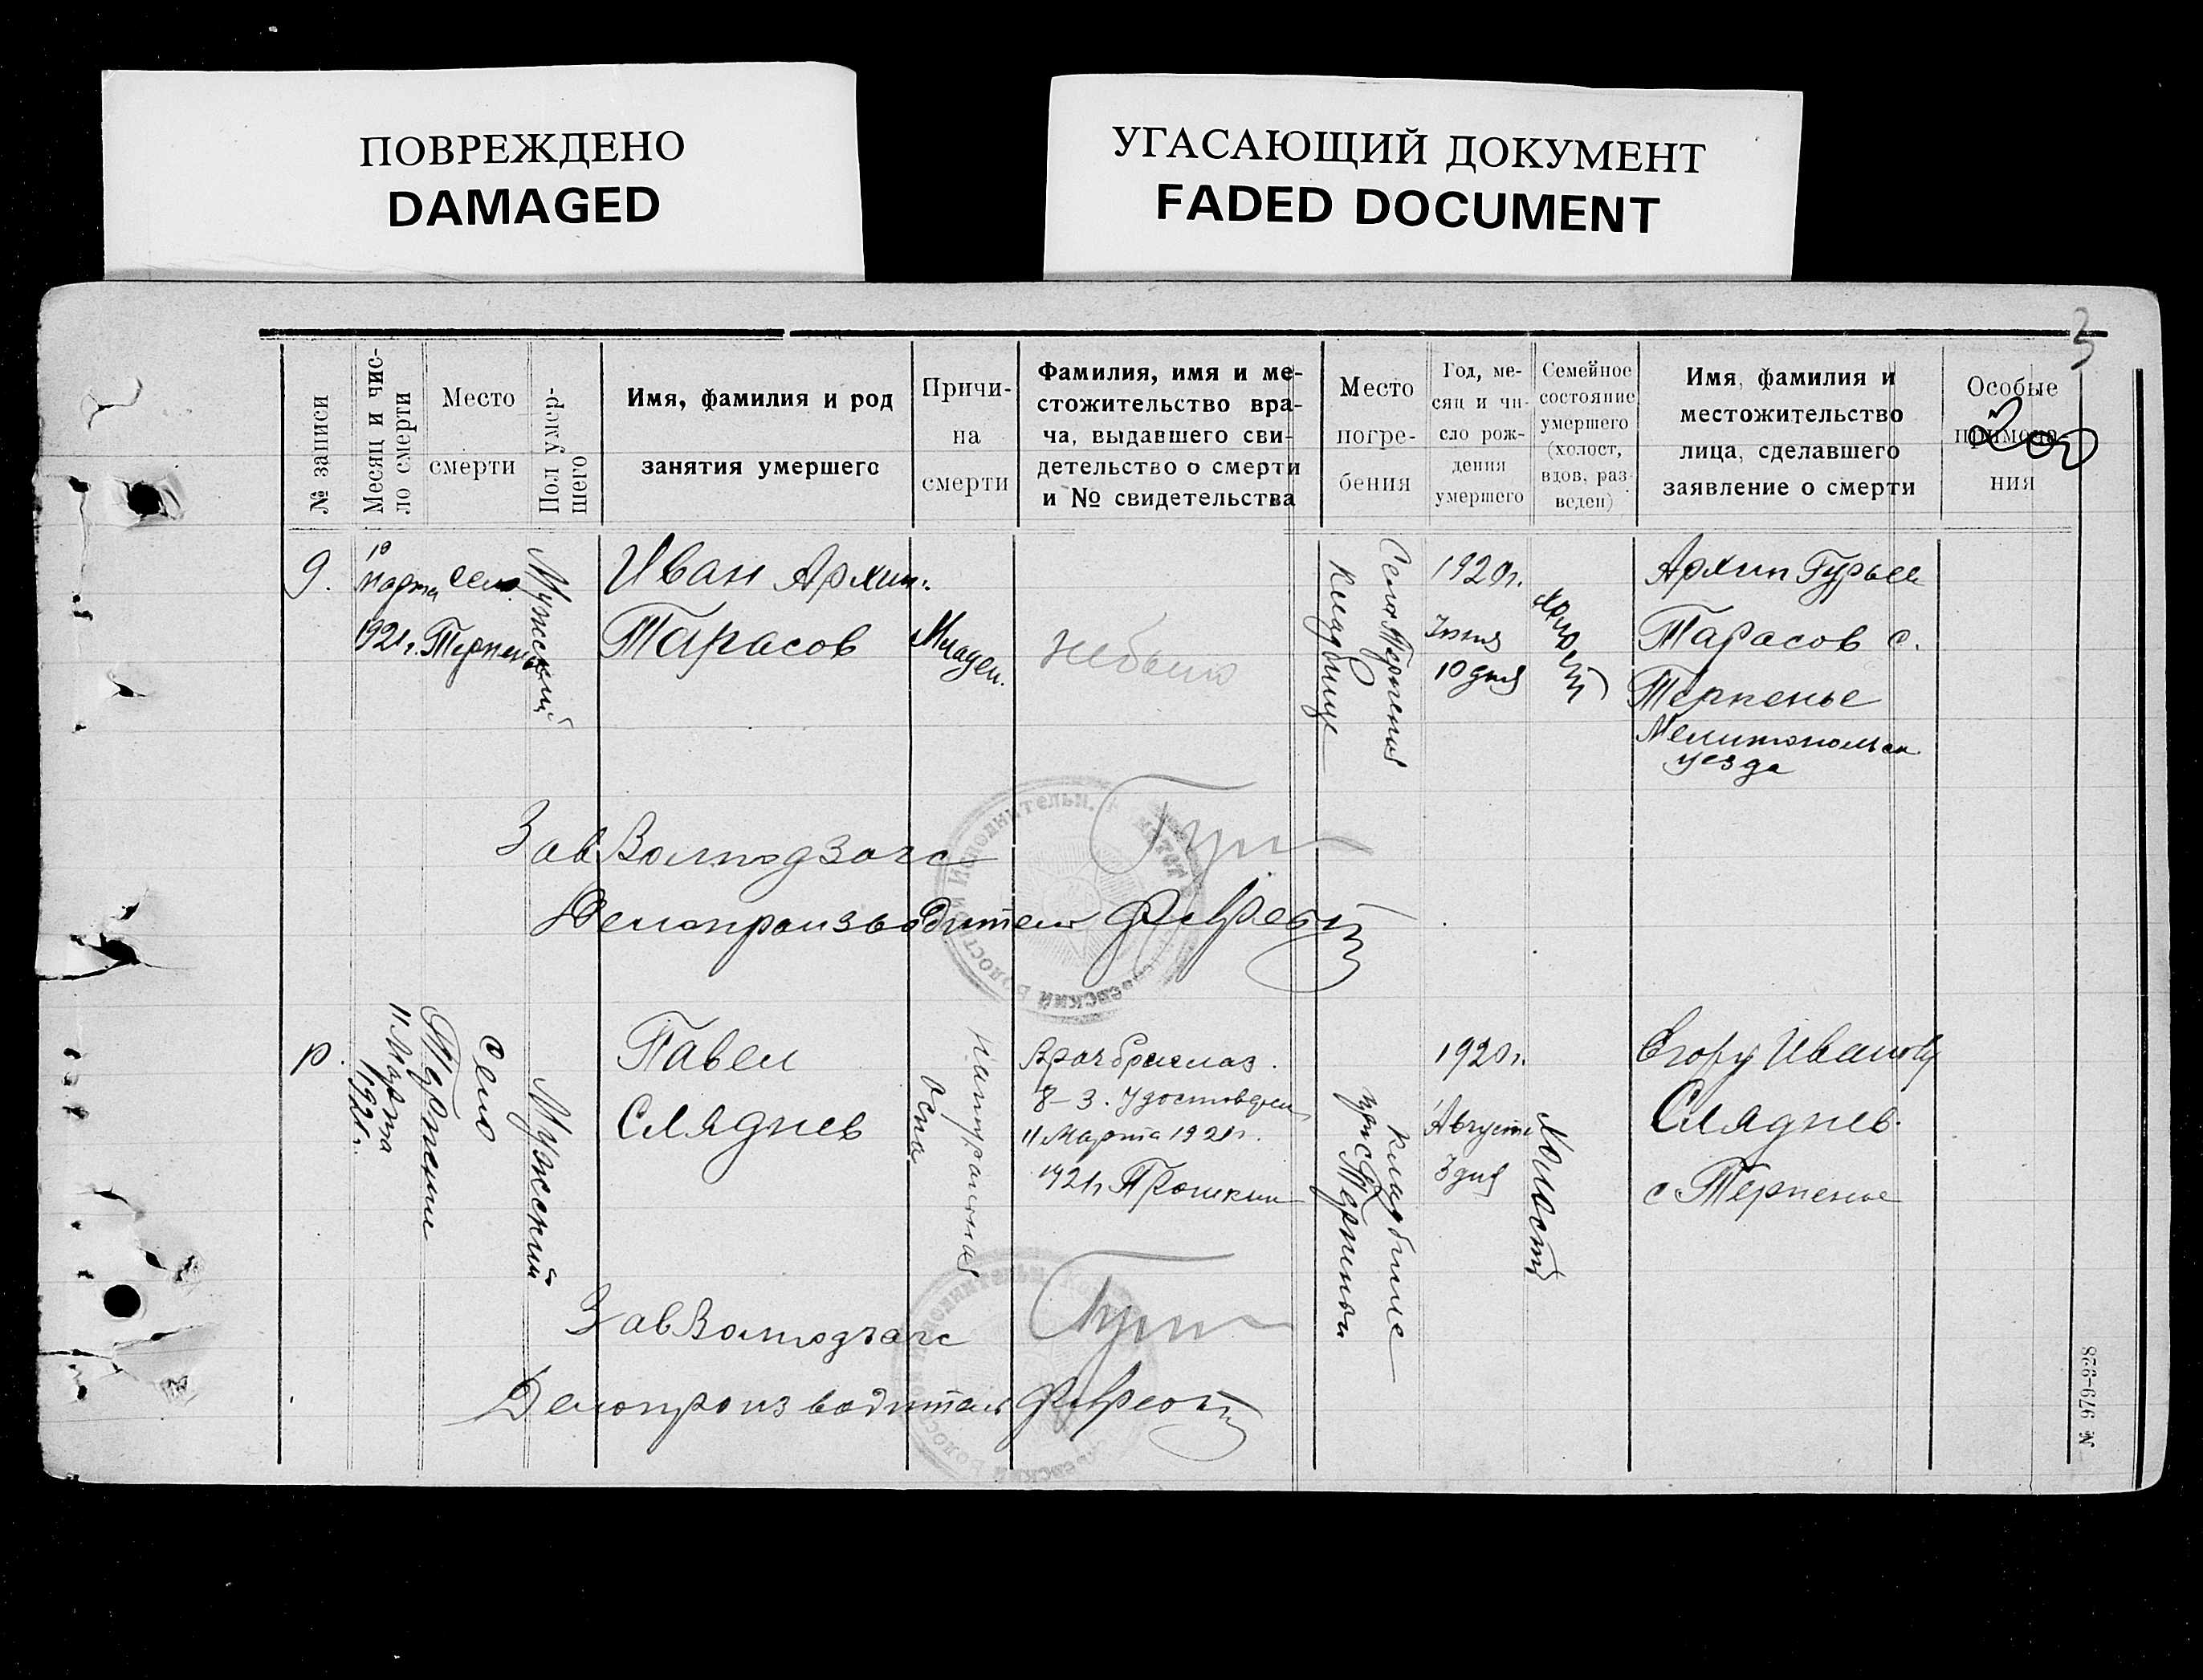 ПОВРЕЖДЕНО
DAMAGED
УГАСАЮЩИЙ ДОКУМЕНТ
FADED DOCUMENT
3
№ записи
Месяц и чис-
ло смерти
Место
смерти
Пол умер-
шего
Имя, фамилия и род
занятия умершего
Причи-
на
смерти
Фамилия, имя и ме-
стожительство вра-
ча, выдавшего сви-
детельство о смерти
и № свидетельства
Место
погре-
бения
Год, ме-
сяц и чи-
сло рож-
дения
умершего
Семейное
состояние
умершего
(холост,
вдов, раз-
веден)
Имя, фамилия и
местожительство
лица, сделавшего
заявление о смерти
Особые
примеча-
ния
200
9.
10
марта
1921г.
село
Терпенье
Мужской
Иван Архип.
Тарасов
Младен.
небыло
Села Терпения
кладбище
1920г.
10 дня
холост
Архип Гурьев
Тарасов с.
Терпенье
Мелитопольск
уезда
ЗавВолподзагс
Делопроизводитель
11 Марта
1921г.
село
Терпение
Мужской
Павел
Сляднев
Натуральная
Оспа
11 Марта 1921г.
1921г
кладбище
1920г.
Августа
3 дня
Холост
Егору Иванову
Сляднев.
с Терпенье
ЗавВолподзагс
Делопроизводитель
№ 979-928